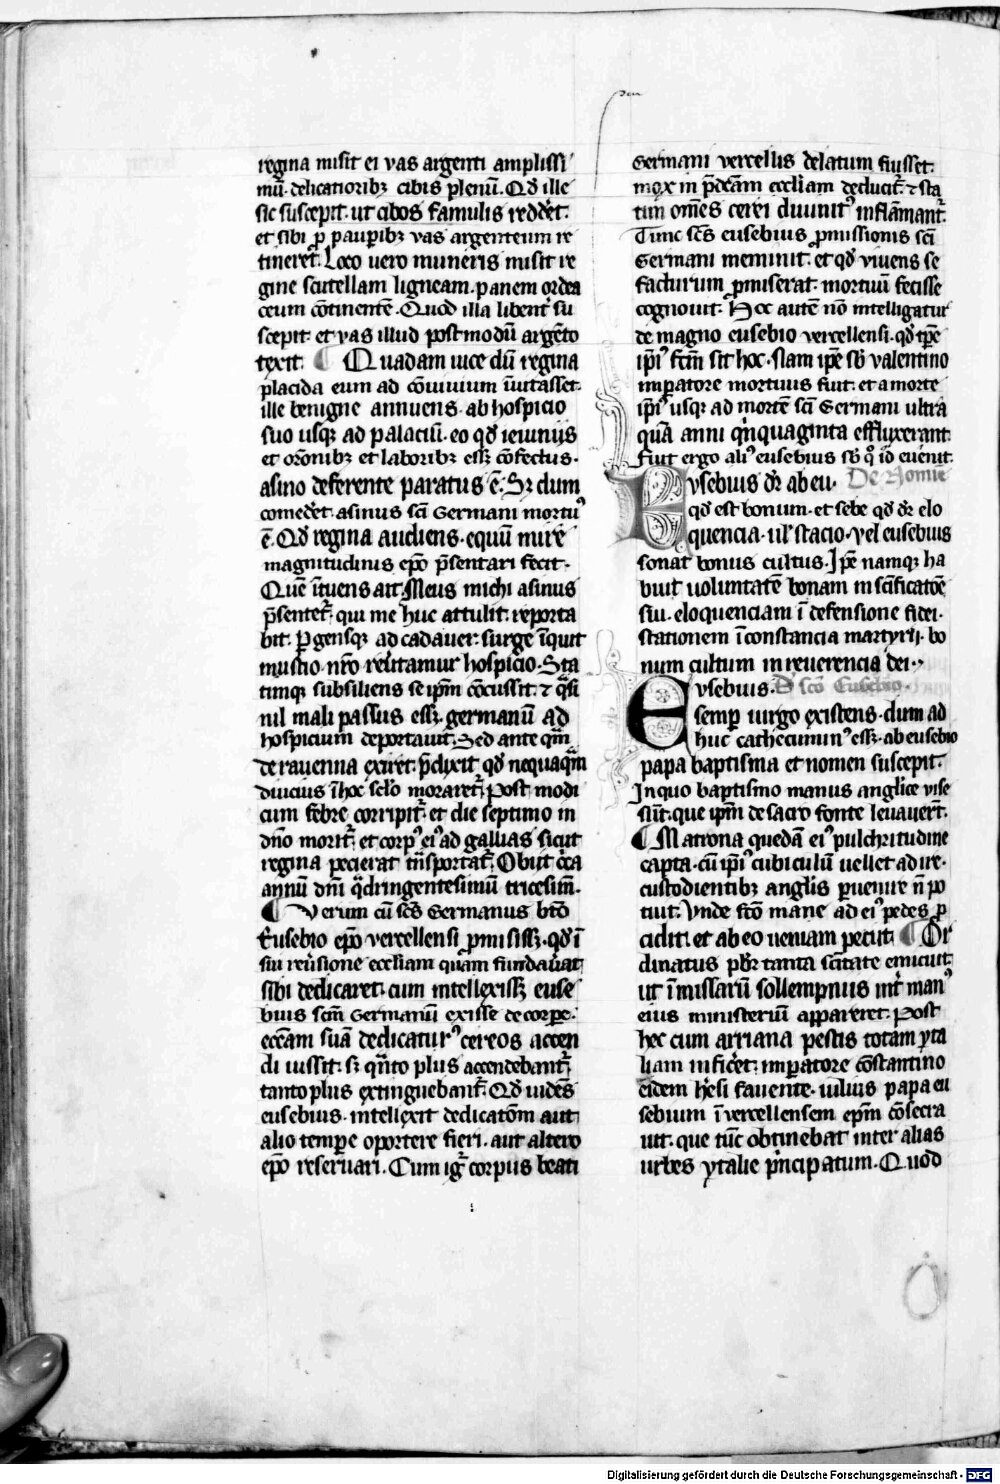 regina misit ei vas argenti amplissi
mū. delicatioribꝫ cibis plenū. Qd ille
sic suscepit. ut cibos famulis redd̄et.
et sibi ꝓ pauꝑibꝫ vas argenteum re
tineret. Loco vero muneris misit re
gine scutellam ligneam. panem ordea
ceum cōtinentē. Quod illa libent̄ su
scepit et vas illud postmodū argēto
texit. ¶ Quadam vice dū regina
placida eum ad cōuiuium īuitasset.
ille benigne annuens. ab hospicio
suo usqꝫ ad palaciū. eo qd ieiuniis
et or̄onibꝫ et laboribꝫ essꝫ cōfectus.
asino deferente paratus ē. Sꝫ dum
comed̄et. asinus sc̄i Germani mortuꝰ
ē. Qd regina audiens. equū mire
magnitudinis ep̄o p̄sentari fecit.
Quē ītuens ait. Meus michi asinus
p̄sentet᷑. qui me huc attulit. reporta
bit. Pergensqꝫ ad cadauer. surge īquit
mustio. nr̄o reūtamur hospicio. Sta
timqꝫ subsiliens se ip̄m cōcussit. ⁊ q̄si
nil mali passus essꝫ. germanū ad
hospicium deportauit. Sed ante qm̄
de rauenna exiret. p̄dixit qd nequaqm̄
diucius ī hoc sclo moraret᷑. Post modi
cum febre corripit᷑. et die septimo in
dn̄o morit᷑. et corpꝰ eiꝰ ad gallias sicut
regina pecierat tn̄sportat᷑. Obiit c̄ca
annū dn̄i q̄dringentesimū tricesim̄.
¶ Verum cū sc̄s Germanus btō
Eusebio ep̄o vercellensi ꝓmisissꝫ. qd ī
sui reūsione eccl̄iam quam fundau̅at
sibi dedicaret. cum intellexissꝫ euse
bius sc̄m Germanū exisse de corpe.
ecc̄am suā dedicaturꝰ cereos accen
di iussit. sꝫ qn̄to plus accendebant᷑
tanto plus extinguebant᷑. Qd uidēs
eusebius. intellexit dedicatōm aut
alio tempe oportere fieri. aut altero
ep̄o reseruari. Cum ig᷑ corpus beati
Germani vercellis delatum fuisset.
mox in p̄dc̄am eccl̄iam deducit᷑. ⁊ sta
tim om̄es cerei diuunitꝰ inflāmant᷑.
Tunc sc̄s eusebius ꝓmissionis sc̄i
Germani meminit. et qd viuens se
facturum ꝓmiserat. mortuū fecisse
cognouit. Hoc autē nō intelligatur
de magno eusebio vercellensi. qd tpe
ip̄iꝰ fc̄m sit hoc. Nam ip̄e sb valentino
imperatore mortuus fuit. et a morte
ip̄iꝰ usqꝫ ad mortē sc̄i Germani ultra
quā anni qinquaginta effluxerant.
fuit ergo aliꝰ eusebius sb qo id euenit.
Eusebius dr̄ ab eu. De Nomīe
qd est bonum. et sebe qd dr̄ elo
quencia. uł stacio. vel eusebius
sonat bonus cultus. Ip̄e namqꝫ ha
buit uoluntatē bonam in sc̄ificatōe
sui. eloquenciam ī defensione fidei.
stationem ī constancia martyrij. bo
num cultum in reuerencia dei.
Eusebius. D̄ sc̄o Eusebio.
semp uirgo existens. dum ad
huc cathecuminꝰ essꝫ. ab eusebio
papa baptisma et nomen suscepit.
In quo baptismo manus anglice vise
sūt. que ip̄m de sacro fonte leuauer̄t.
¶ Matrona quedā eiꝰ pulchritudine
capta. cū ip̄iꝰ cubiculū uellet adire.
custodientibꝫ anglis ꝑuenire n̄ po
tuit. Vnde fc̄o mane ad eiꝰ pedes ꝓ
cidit. et ab eo ueniam peciit. ¶ Or
dinatus pbr̄ tanta sc̄itate emicuit.
ut ī missarū sollempniis int᷑ manꝰ
eius ministeriū appareret. Post
hec cum arriana pestis totam yta
liam inficēt. imperatore cōstantino
eidem h̄esi fauente. iulius papa eu
sebium ī vercellensem ep̄m cōsecra
uit. que tūc obtinebat inter alias
urbes ytalie p̄ncipatum. Quod
Digitalisierung gefördert durch die Deutsche Forschungsgemeinschaft - DFG